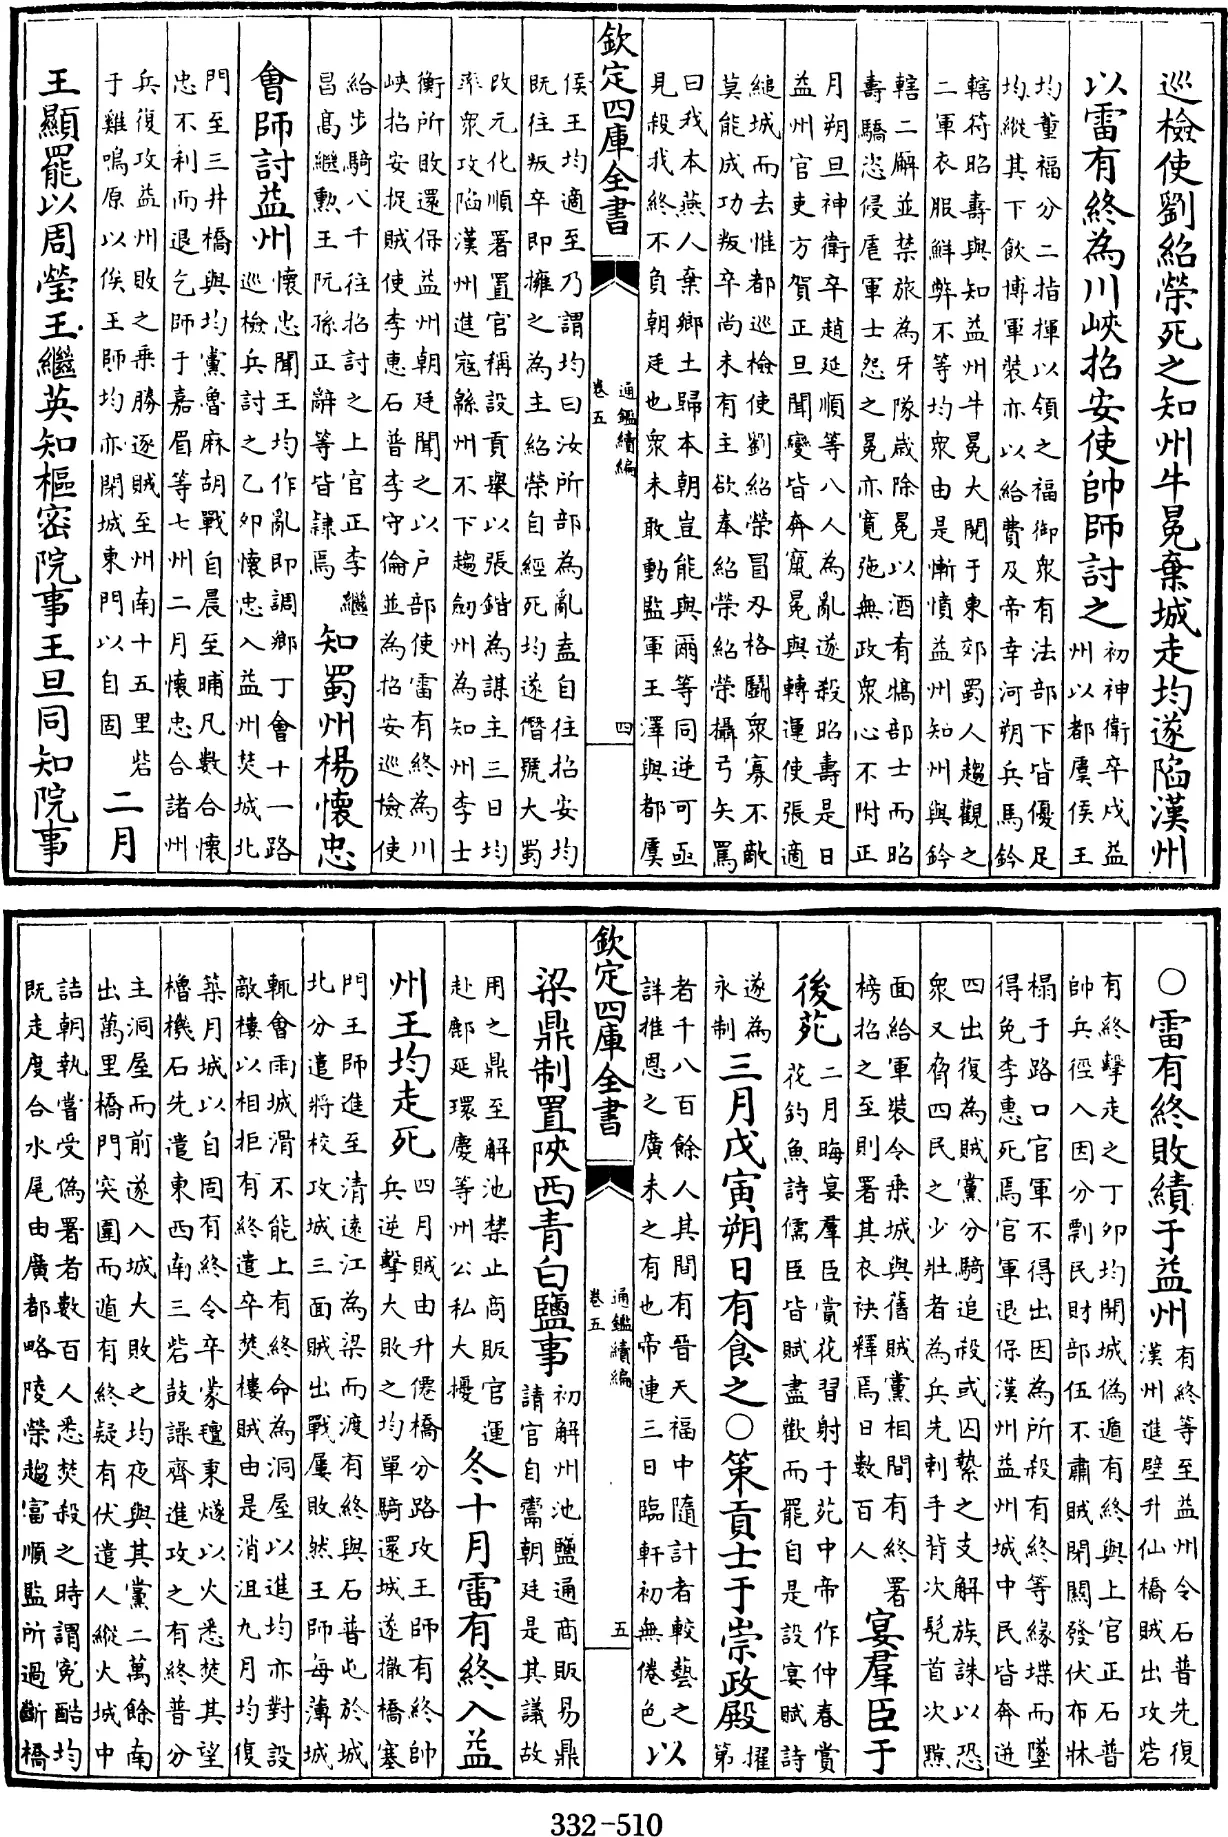 巡檢使劉紹榮死之知州牛冕棄城走均遂陷漢州
以雷有終為川峽招安使帥師討之
初神衛卒戍益
州以都虞侯王
均董福分二指揮以領之福御衆有法部下皆優足
均縱其下飲博軍裝亦以給費及帝幸河朔兵馬鈐
轄符昭壽與知益州牛冕大閱于東郊蜀人趨觀之
二軍衣服鮮弊不等均衆由是慚憤益州知州與鈐
轄二廨並禁旅為牙隊歲除冕以酒有犒部士而昭
壽驕恣侵虐軍士怨之冕亦寬弛無政衆心不附正
月朔旦神衛卒趙延順等八人為亂遂殺昭壽是日
益州官吏方賀正旦聞變皆奔竄冕與轉運使張適
縋城而去惟都巡檢使劉紹榮冒刃格鬭衆寡不敵
莫能成功叛卒尚未有主欲奉紹榮紹榮攝弓矢罵
曰我本燕人棄鄉土歸本朝豈能與爾等同逆可亟
見殺我終不負朝廷也衆未敢動監軍王澤與都虞
欽定四庫全書
通鑑續編
卷五
四
侯王均適至乃謂均曰汝所部為亂盍自往招安均
既往叛卒即擁之為主紹榮自經死均遂僭號大蜀
改元化順署置官稱設貢舉以張鍇為謀主三日均
率衆攻陷漢州進寇緜州不下趨劒州為知州李士
衡所敗還保益州朝廷聞之以戶部使雷有終為川
峽招安捉賊使李惠石普李守倫並為招安巡檢使
給步騎八千往招討之上官正李繼
昌高繼勲王阮孫正辭等皆隸焉
知蜀州楊懷忠
會師討益州
懷忠聞王均作亂即調鄉丁會十一路
巡檢兵討之乙卯懷忠入益州焚城北
門至三井橋與均黨魯麻胡戰自晨至晡凡數合懷
忠不利而退乞師于嘉眉等七州二月懷忠合諸州
兵復攻益州敗之乘勝逐賊至州南十五里砦
于雞鳴原以俟王師均亦閉城東門以自固
二月
王顯罷以周瑩王繼英知樞密院事王旦同知院事
○雷有終敗績于益州
有終等至益州令石普先復
漢州進壁升仙橋賊出攻砦
有終擊走之丁卯均開城偽遁有終與上官正石普
帥兵徑入因分剽民財部伍不肅賊閉關發伏布牀
榻于路口官軍不得出因為所殺有終等緣堞而墜
得免李惠死焉官軍退保漢州益州城中民皆奔迸
四出復為賊黨分騎追殺或囚縶之支解族誅以恐
衆又脅四民之少壯者為兵先刺手背次髠首次黥
面給軍裝令乘城與舊賊黨相間有終署
榜招之至則署其衣袂釋焉日數百人
宴羣臣于
後苑
二月晦宴羣臣賞花習射于苑中帝作仲春賞
花釣魚詩儒臣皆賦盡歡而罷自是設宴賦詩
遂為
永制
三月戊寅朔日有食之○策貢士于崇政殿
擢
第
者千八百餘人其間有晉天福中隨計者較藝之
詳推恩之廣未之有也帝連三日臨軒初無倦色
以
欽定四庫全書
通鑑續編
卷五
五
梁鼎制置陝西青白鹽事
初解州池鹽通商販易鼎
請官自鬻朝廷是其議故
用之鼎至解池禁止商販官運
赴鄜延環慶等州公私大擾
冬十月雷有終入益
州王均走死
四月賊由升僊橋分路攻王師有終帥
兵逆擊大敗之均單騎還城遂撤橋塞
門王師進至清遠江為梁而渡有終與石普屯於城
北分遣將校攻城三面賊出戰屢敗然王師每薄城
輒會雨城滑不能上有終命為洞屋以進均亦對設
敵樓以相拒有終遣卒焚樓賊由是消沮九月均復
築月城以自固有終令卒蒙氊秉燧以火悉焚其望
櫓機石先遣東西南三砦鼓譟齊進攻之有終普分
主洞屋而前遂入城大敗之均夜與其黨二萬餘南
出萬里橋門突圍而遁有終疑有伏遣人縱火城中
詰朝執嘗受偽署者數百人悉焚殺之時謂寃酷均
既走度合水尾由廣都略陵榮趨富順監所過斷橋
332-510